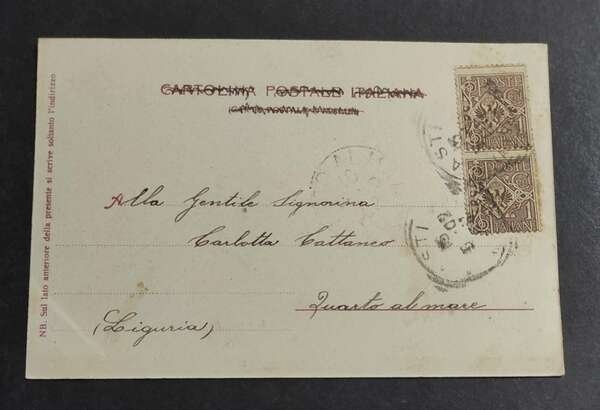 CARTOLINA POSTALE ITALIANA
(CARTE POSTALE D'ITALIE)
Alla Gentile Signorina
Carlotta Cattaneo
Quarto al mare
(Liguria)
NB. Sul lato anteriore della presente si scrive soltanto l'indirizzo
ASTI